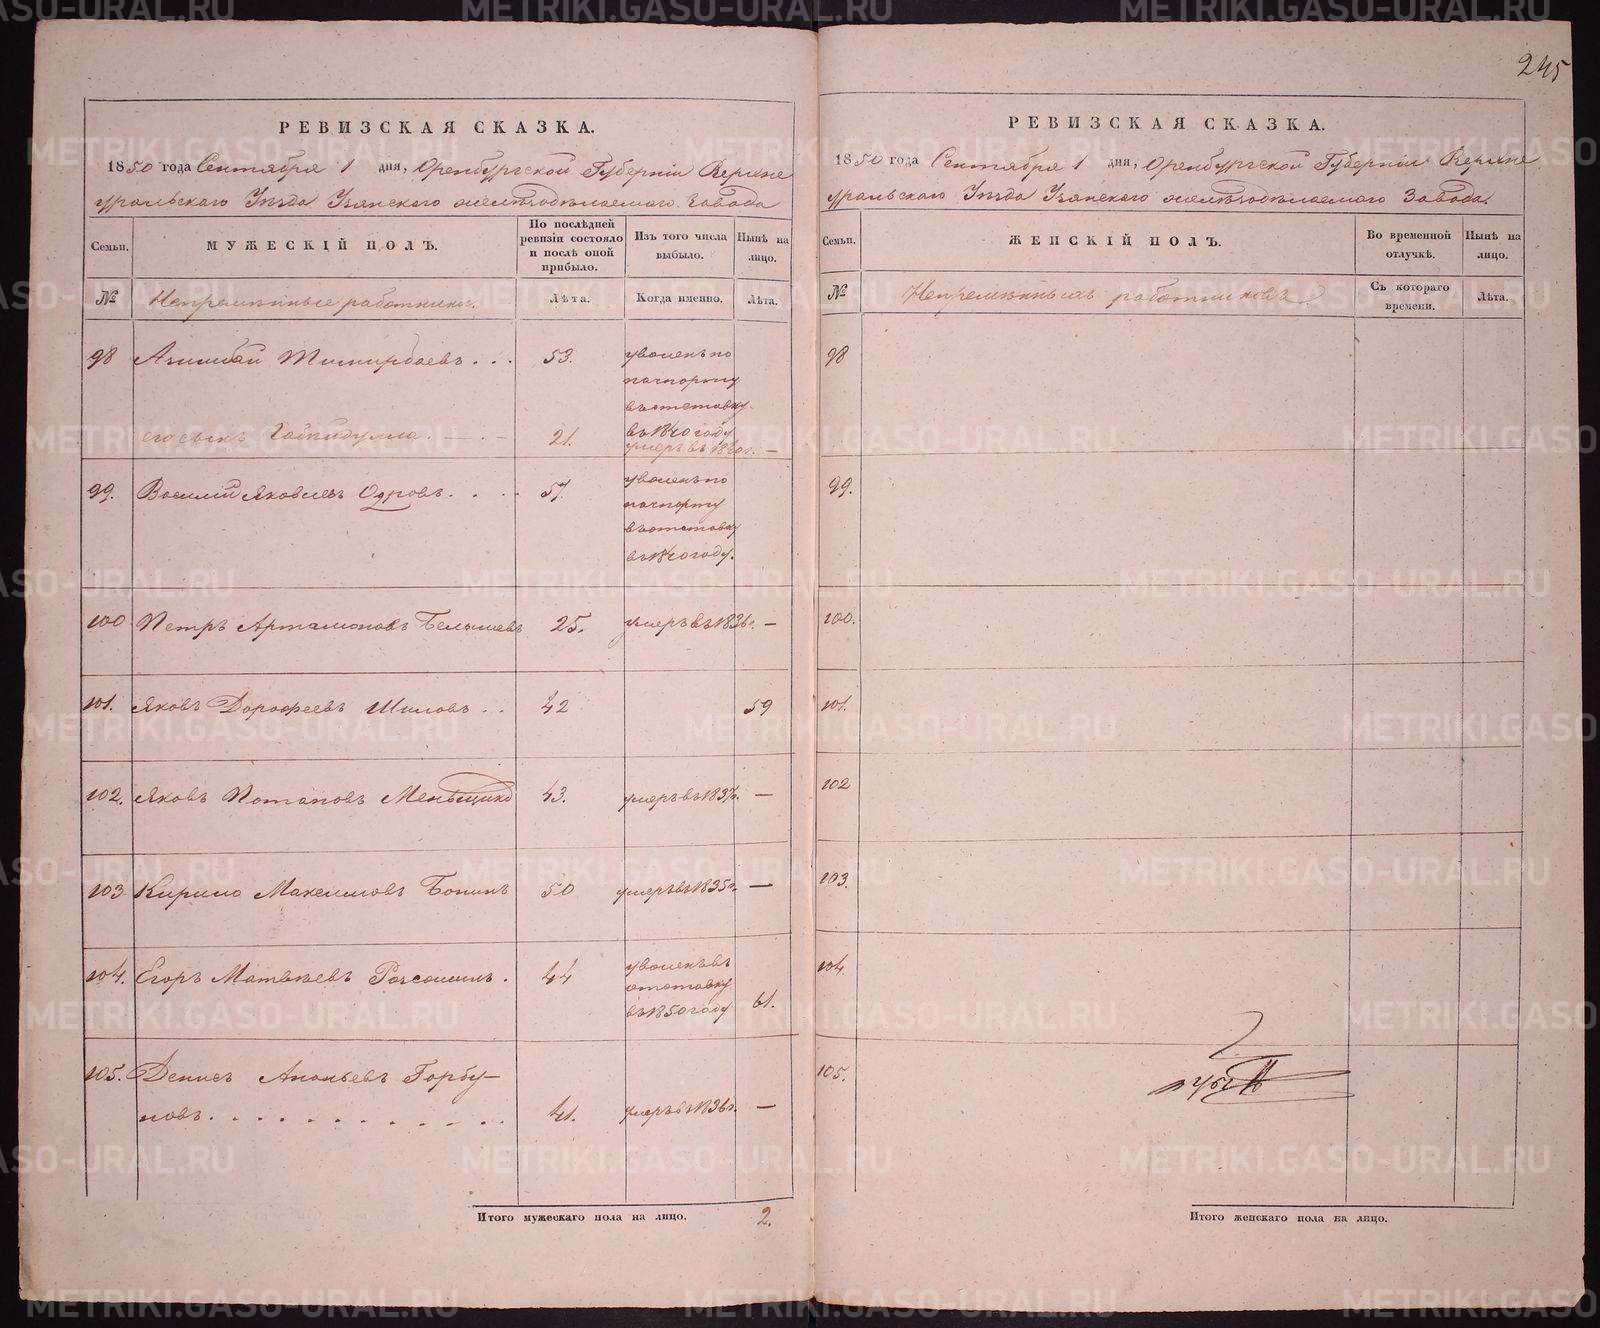 245
РЕВИЗСКАЯ СКАЗКА.
1850 года Сентября 1 дня, Оренбургской Губерніи Верхне
уральскаго Уѣзда Узянскаго желѣзодѣлаемаго Завода
Семьи.
МУЖЕСКІЙ ПОЛЪ.
По послѣдней
ревизіи состояло
и послѣ оной
прибыло.
Изъ того числа
выбыло.
Нынѣ на
лицо.
№
Непремѣнные работники.
Лѣта.
Когда именно.
Лѣта.
98 Тимирбаевъ . . . 53. уволенъ по
пачпорту
въ отставку
въ 1840 году
его сынъ 21. умеръ въ 1840 г. —
99. Василий Яковлевъ Одровъ . . . 57. уволенъ по
пачпорту
въ отставку
въ 1840 году.
100 Петръ Артамоновъ Белышевъ 25. умеръ въ 1836 г. —
101. Яковъ Дорофеевъ Шиловъ . . 42 59
102. Яковъ Потаповъ Меньщико 43. умеръ въ 1837 г. —
103 Кирило Максимовъ Бонинъ 50 умеръ въ 1835 г. —
104. Егоръ Матвѣевъ . 44 уволенъ въ
отставку
въ 1850 году 61.
105. Денисъ Ананьевъ Горбу-
новъ. . . . . . . . . . . . 41. умеръ въ 1836 г. —
Итого мужескаго пола на лицо. 2.
РЕВИЗСКАЯ СКАЗКА.
1850 года Сентября 1 дня, Оренбургской Губерніи Верхне
уральскаго Уѣзда Узянскаго желѣзодѣлаемаго Завода.
Семьи.
ЖЕНСКІЙ ПОЛЪ.
Во временной
отлучкѣ.
Нынѣ на
лицо.
№
Непремѣнныхъ работниковъ
Съ котораго
времени.
Лѣта.
98
99.
100.
101.
102
103.
104.
105.
Итого женскаго пола на лицо.
METRIKI.GASO-URAL.RU